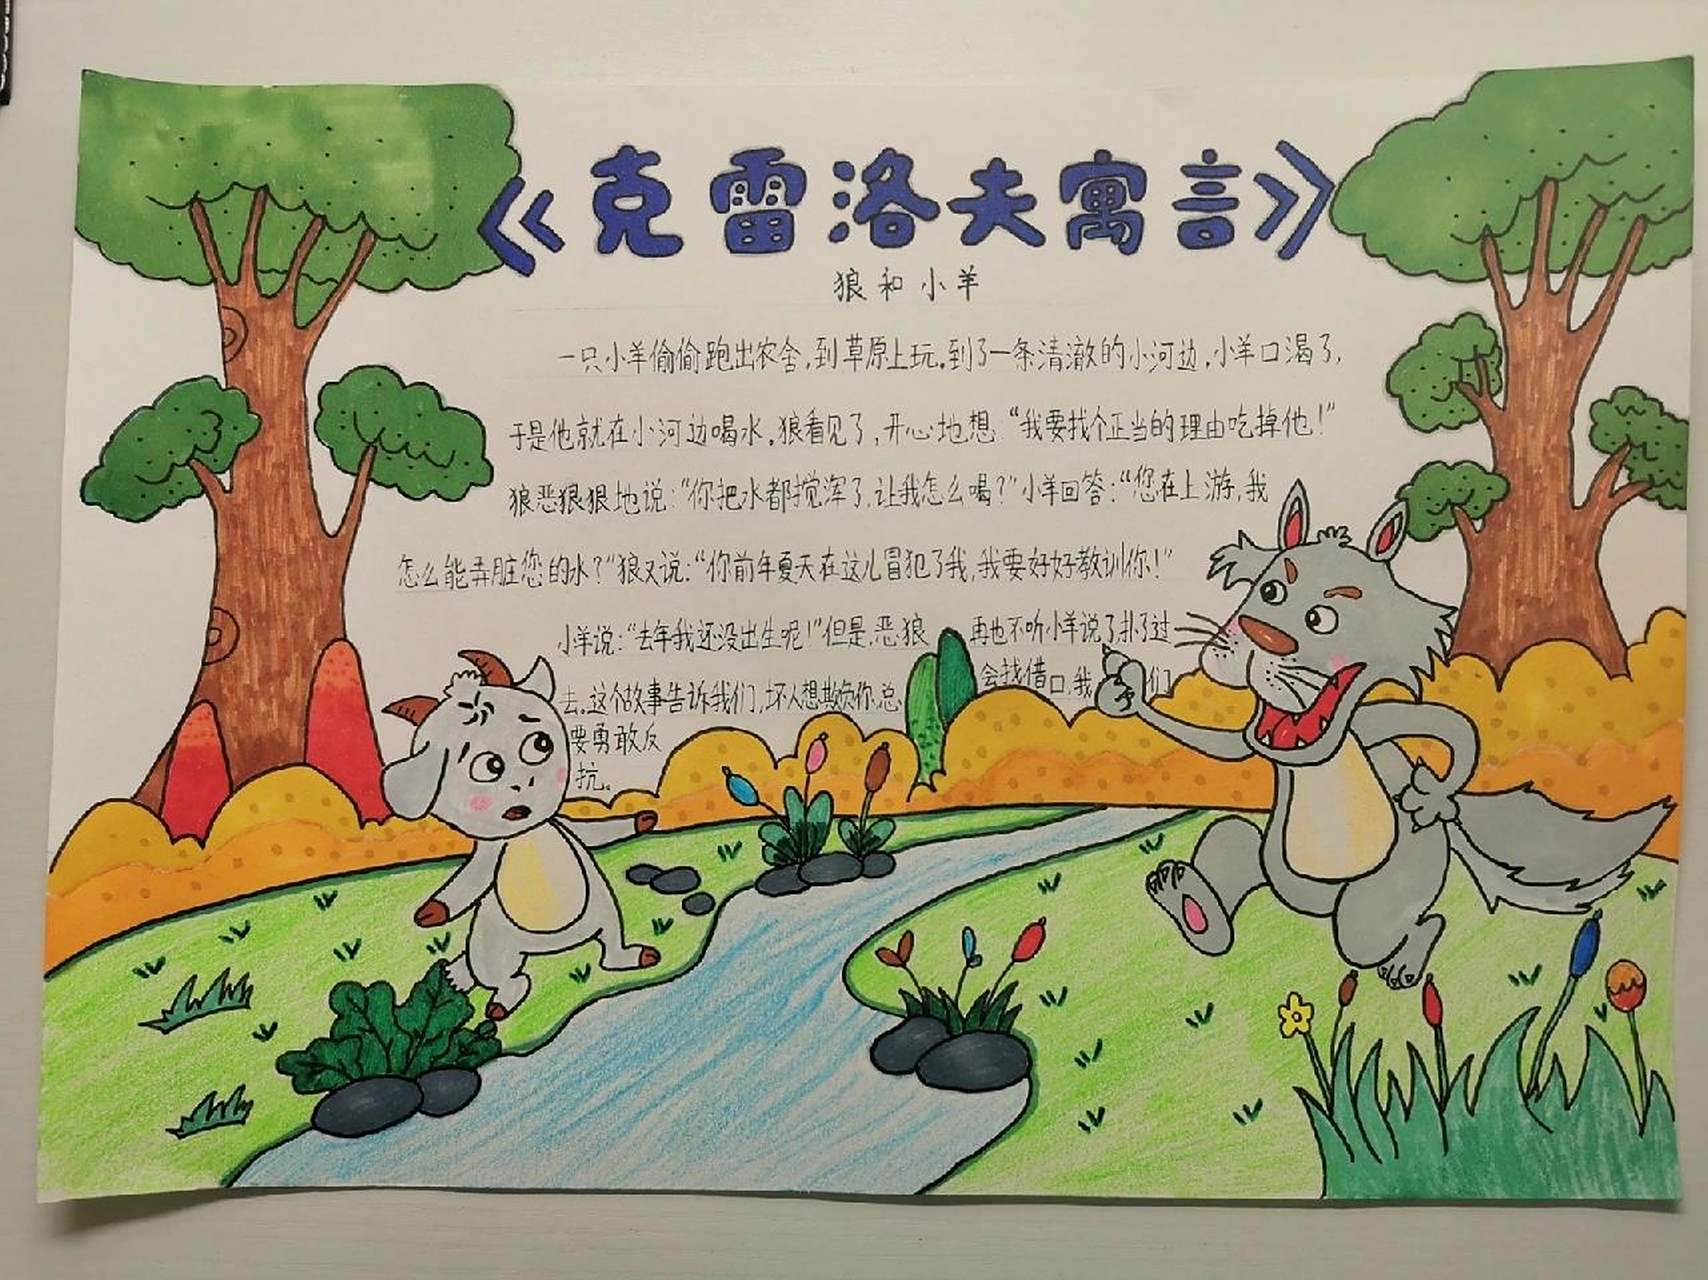 《克雷洛夫寓言》
狼和小羊
一只小羊偷偷跑出农舍,到草原上玩。到了一条清澈的小河边,小羊口渴了,
于是他就在小河边喝水。狼看见了,开心地想“我要找个正当的理由吃掉他!”
狼恶狠狠地说:“你把水都搅浑了,让我怎么喝?”小羊回答:“您在上游,我
怎么能弄脏您的水?”狼又说:“你前年夏天在这儿冒犯了我,我要好好教训你!”
小羊说:“去年我还没出生呢!”但是,恶狼 再也不听小羊说了,扑了过
去。这个故事告诉我们,坏人想欺负你,总 会找借口,我们
要勇敢反
抗。